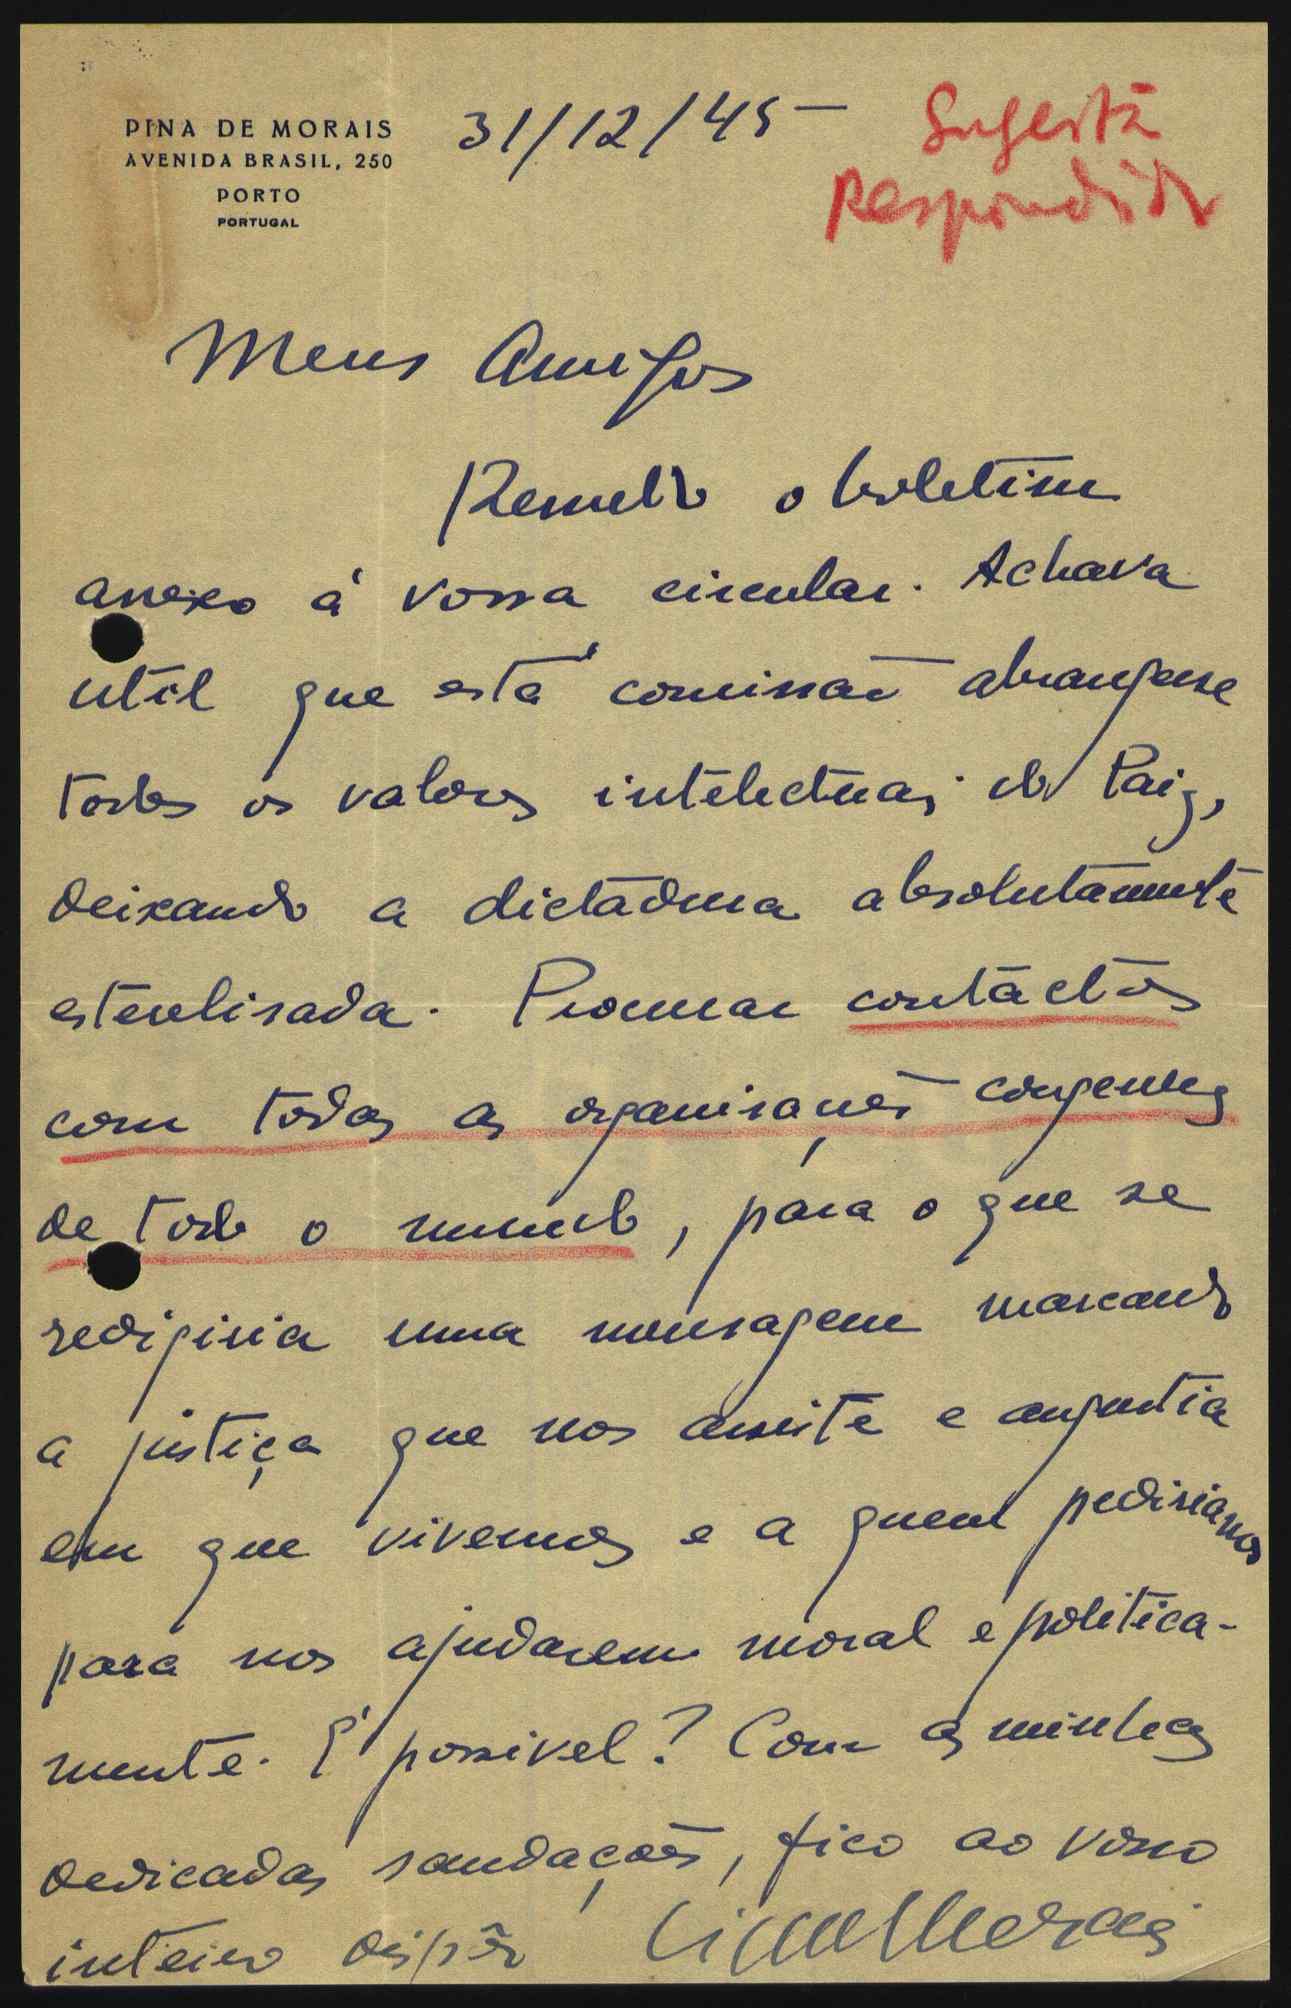 PINA DE MORAIS
AVENIDA BRASIL, 250
PORTO
PORTUGAL
31/12/45
Sugestã
Respondido
Meus Amigos
Remeto o boletim
anexo á vossa circular. Achava
util que está comissão abrangesse
todos os valores intelectuais do Paiz,
deixando a dictadura absolutamente
esterelisada. Procurar contactos
com todas as organisações congeneres
de todo o mundo, para o que se
redigiria uma mensagem marcando
a justiça que nos assiste e angustia
em que vivemos e a quem pediriamos
para nos ajudarem moral e politica-
mente. É possivel? Com as minhas
dedicadas saudações, fico ao vosso
inteiro dispôr Pina de Morais